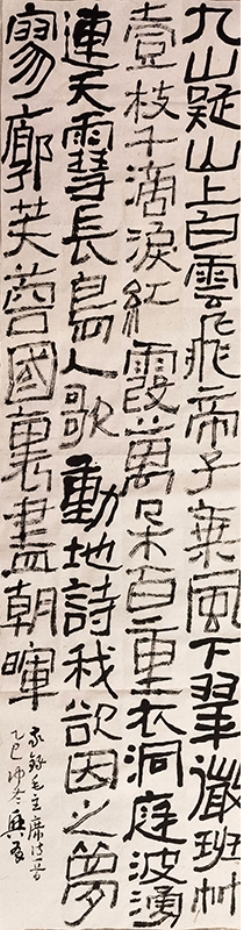 九嶷山上白雲飛帝子乘風下翠微班竹
壹枝千滴淚紅霞萬朵百重衣洞庭波湧
連天雪長島人歌動地詩我欲因之夢
寥廓芙蓉國裏盡朝暉
敬錄毛主席詩一首
乙巳仲冬興